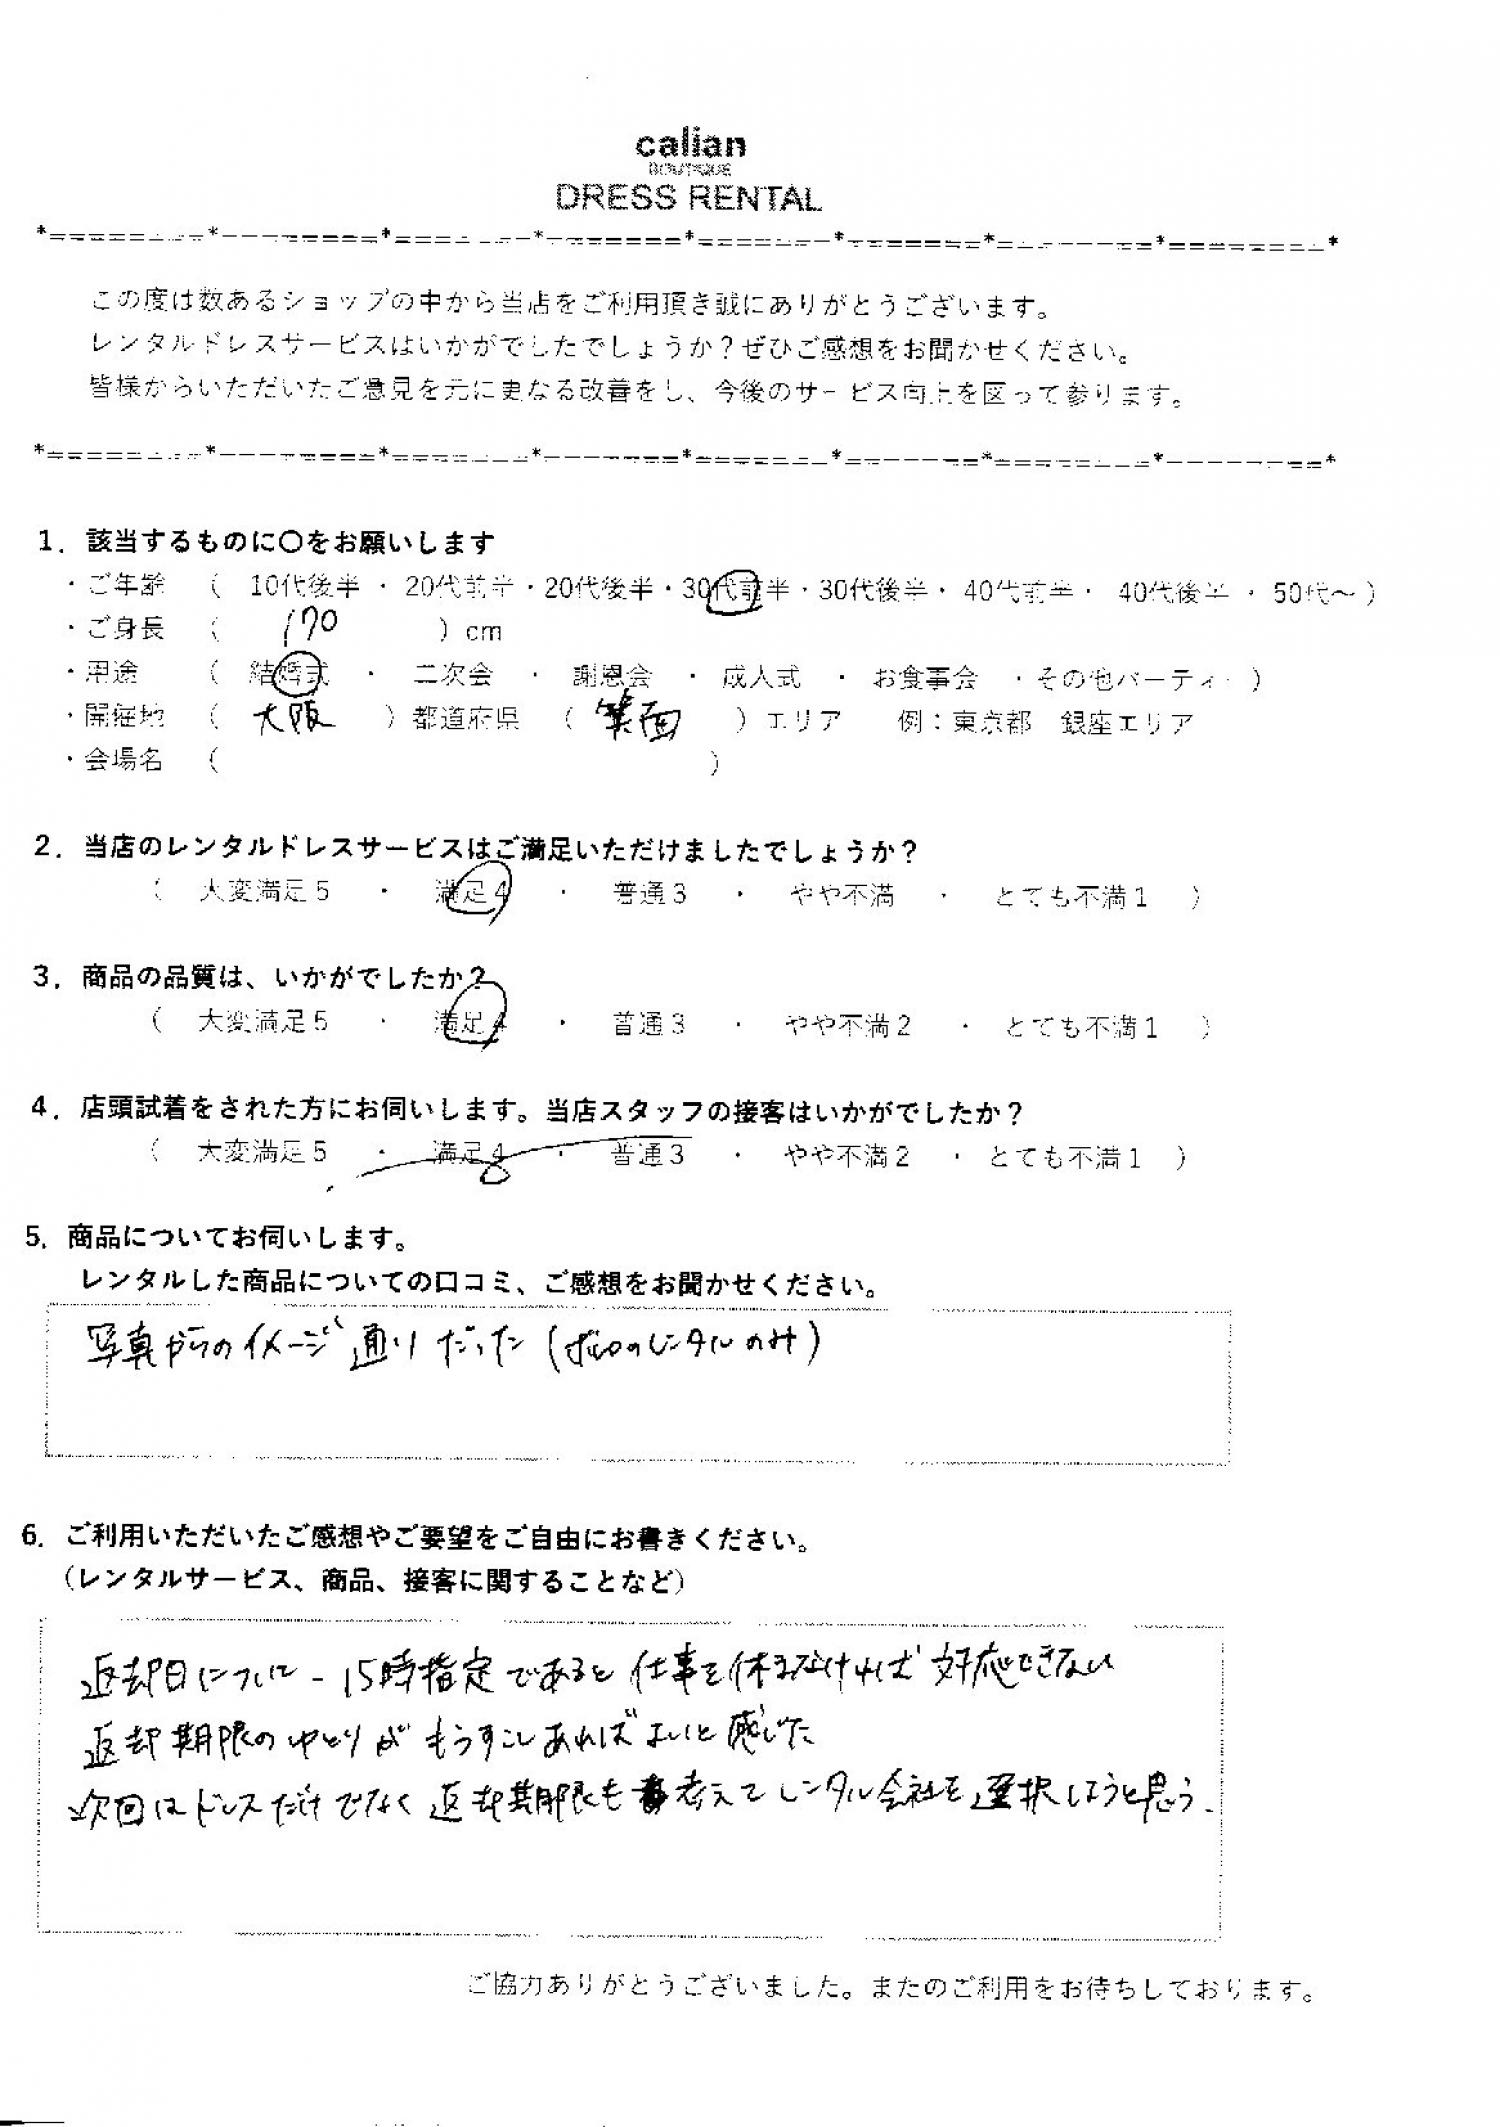 calian
BOUTIQUE
DRESS RENTAL
この度は数あるショップの中から当店をご利用頂き誠にありがとうございます。
レンタルドレスサービスはいかがでしたでしょうか？ぜひご感想をお聞かせください。
皆様からいただいたご意見を元に更なる改善をし、今後のサービス向上を図って参ります。
1．該当するものに〇をお願いします
・ご年齢 （ 10代後半 ・ 20代前半・20代後半・30代前半・30代後半・ 40代前半・ 40代後半 ・ 50代～ ）
・ご身長 （ 170 ）cm
・用途 （ 結婚式 ・ 二次会 ・ 謝恩会 ・ 成人式 ・ お食事会 ・その他パーティー ）
・開催地 （ 大阪 ）都道府県 （ 箕面 ）エリア 例：東京都 銀座エリア
・会場名 （ ）
2．当店のレンタルドレスサービスはご満足いただけましたでしょうか？
（ 大変満足５ ・ 満足４ ・ 普通３ ・ やや不満 ・ とても不満１ ）
3．商品の品質は、いかがでしたか？
（ 大変満足５ ・ 満足４ ・ 普通３ ・ やや不満２ ・ とても不満１ ）
4．店頭試着をされた方にお伺いします。当店スタッフの接客はいかがでしたか？
（ 大変満足５ ・ 満足４ ・ 普通３ ・ やや不満２ ・ とても不満１ ）
5．商品についてお伺いします。
レンタルした商品についての口コミ、ご感想をお聞かせください。
写真からのイメージ通りだった（ のレンタルのみ）
6．ご利用いただいたご感想やご要望をご自由にお書きください。
（レンタルサービス、商品、接客に関することなど）
返却日について－15時指定であると仕事を休まなければ対応できない
返却期限のゆとりがもうすこしあればよいと感じた
次回はドレスだけでなく返却期限も考えてレンタル会社を選択しようと思う.
ご協力ありがとうございました。またのご利用をお待ちしております。